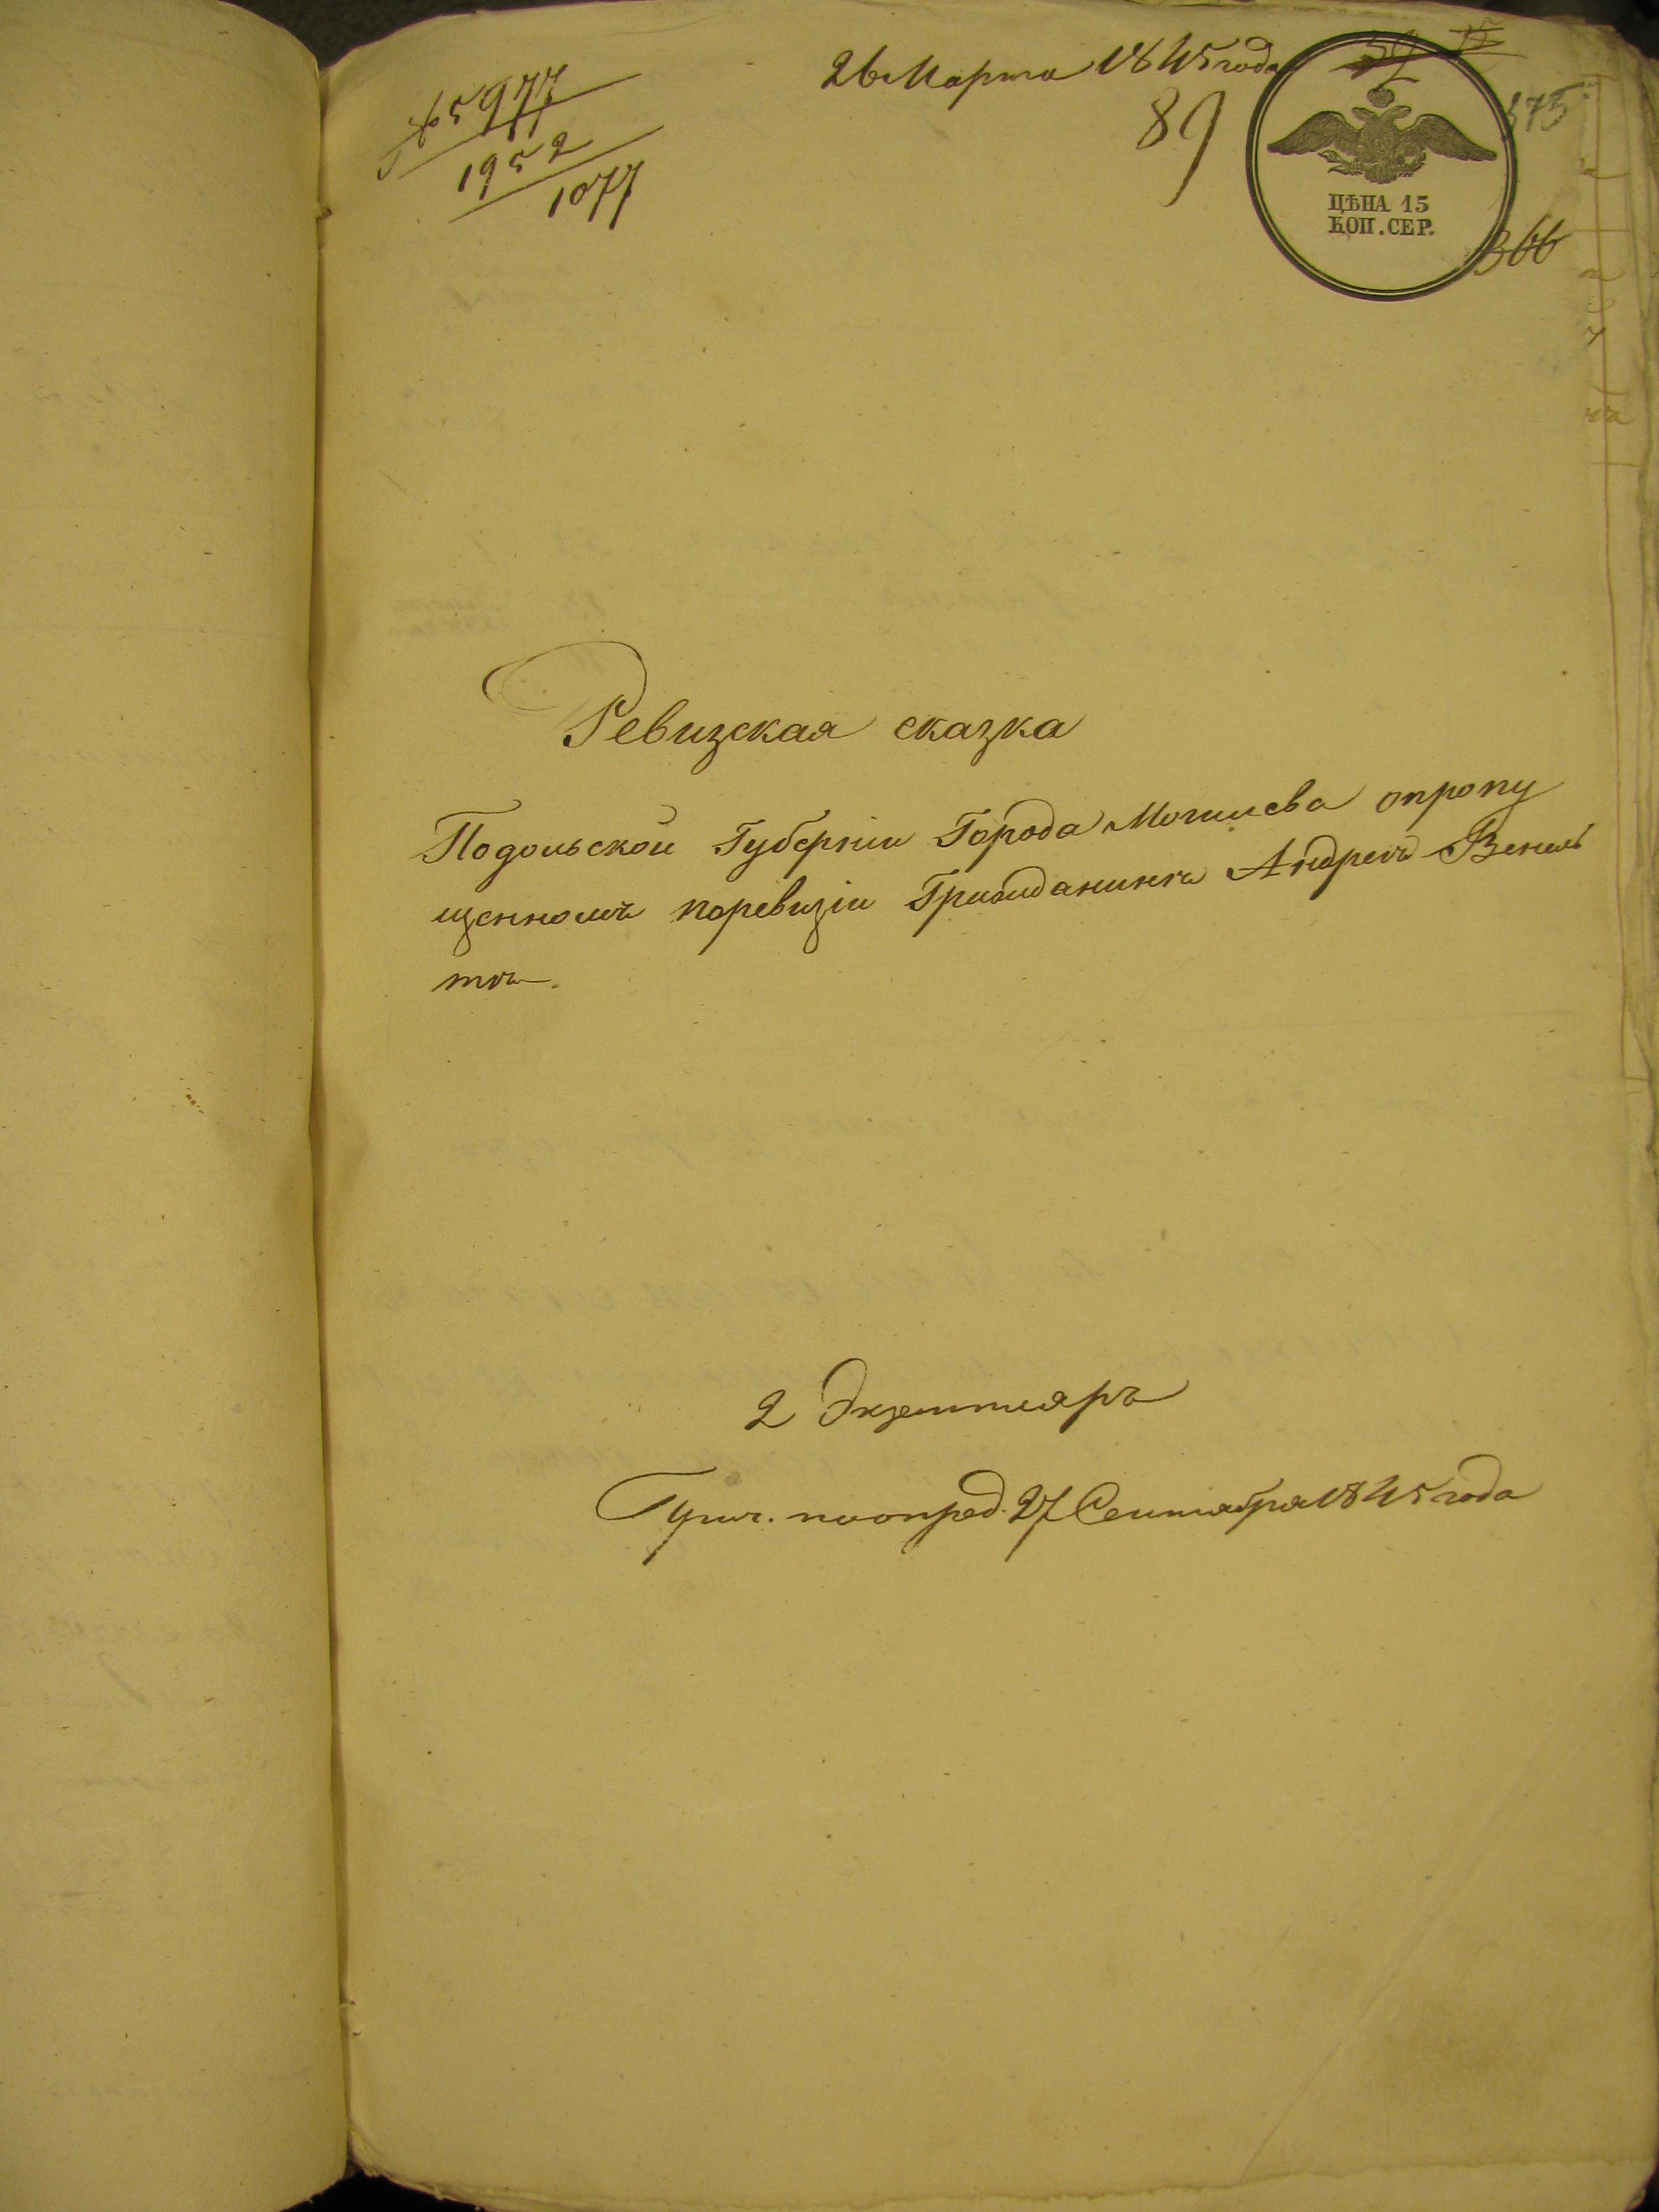 26 Марта 1845 года
№ 5977
1952
1077
89
375
366
ЦѢНА 15
КОП. СЕР.
Ревизская сказка
Подольской Губернии Города Могилева опропу
щенномъ поревизіи Гражданинѣ Андреѣ Венель
тѣ.
2 Экземпляръ
по опред. 27 Сентября 1845 года